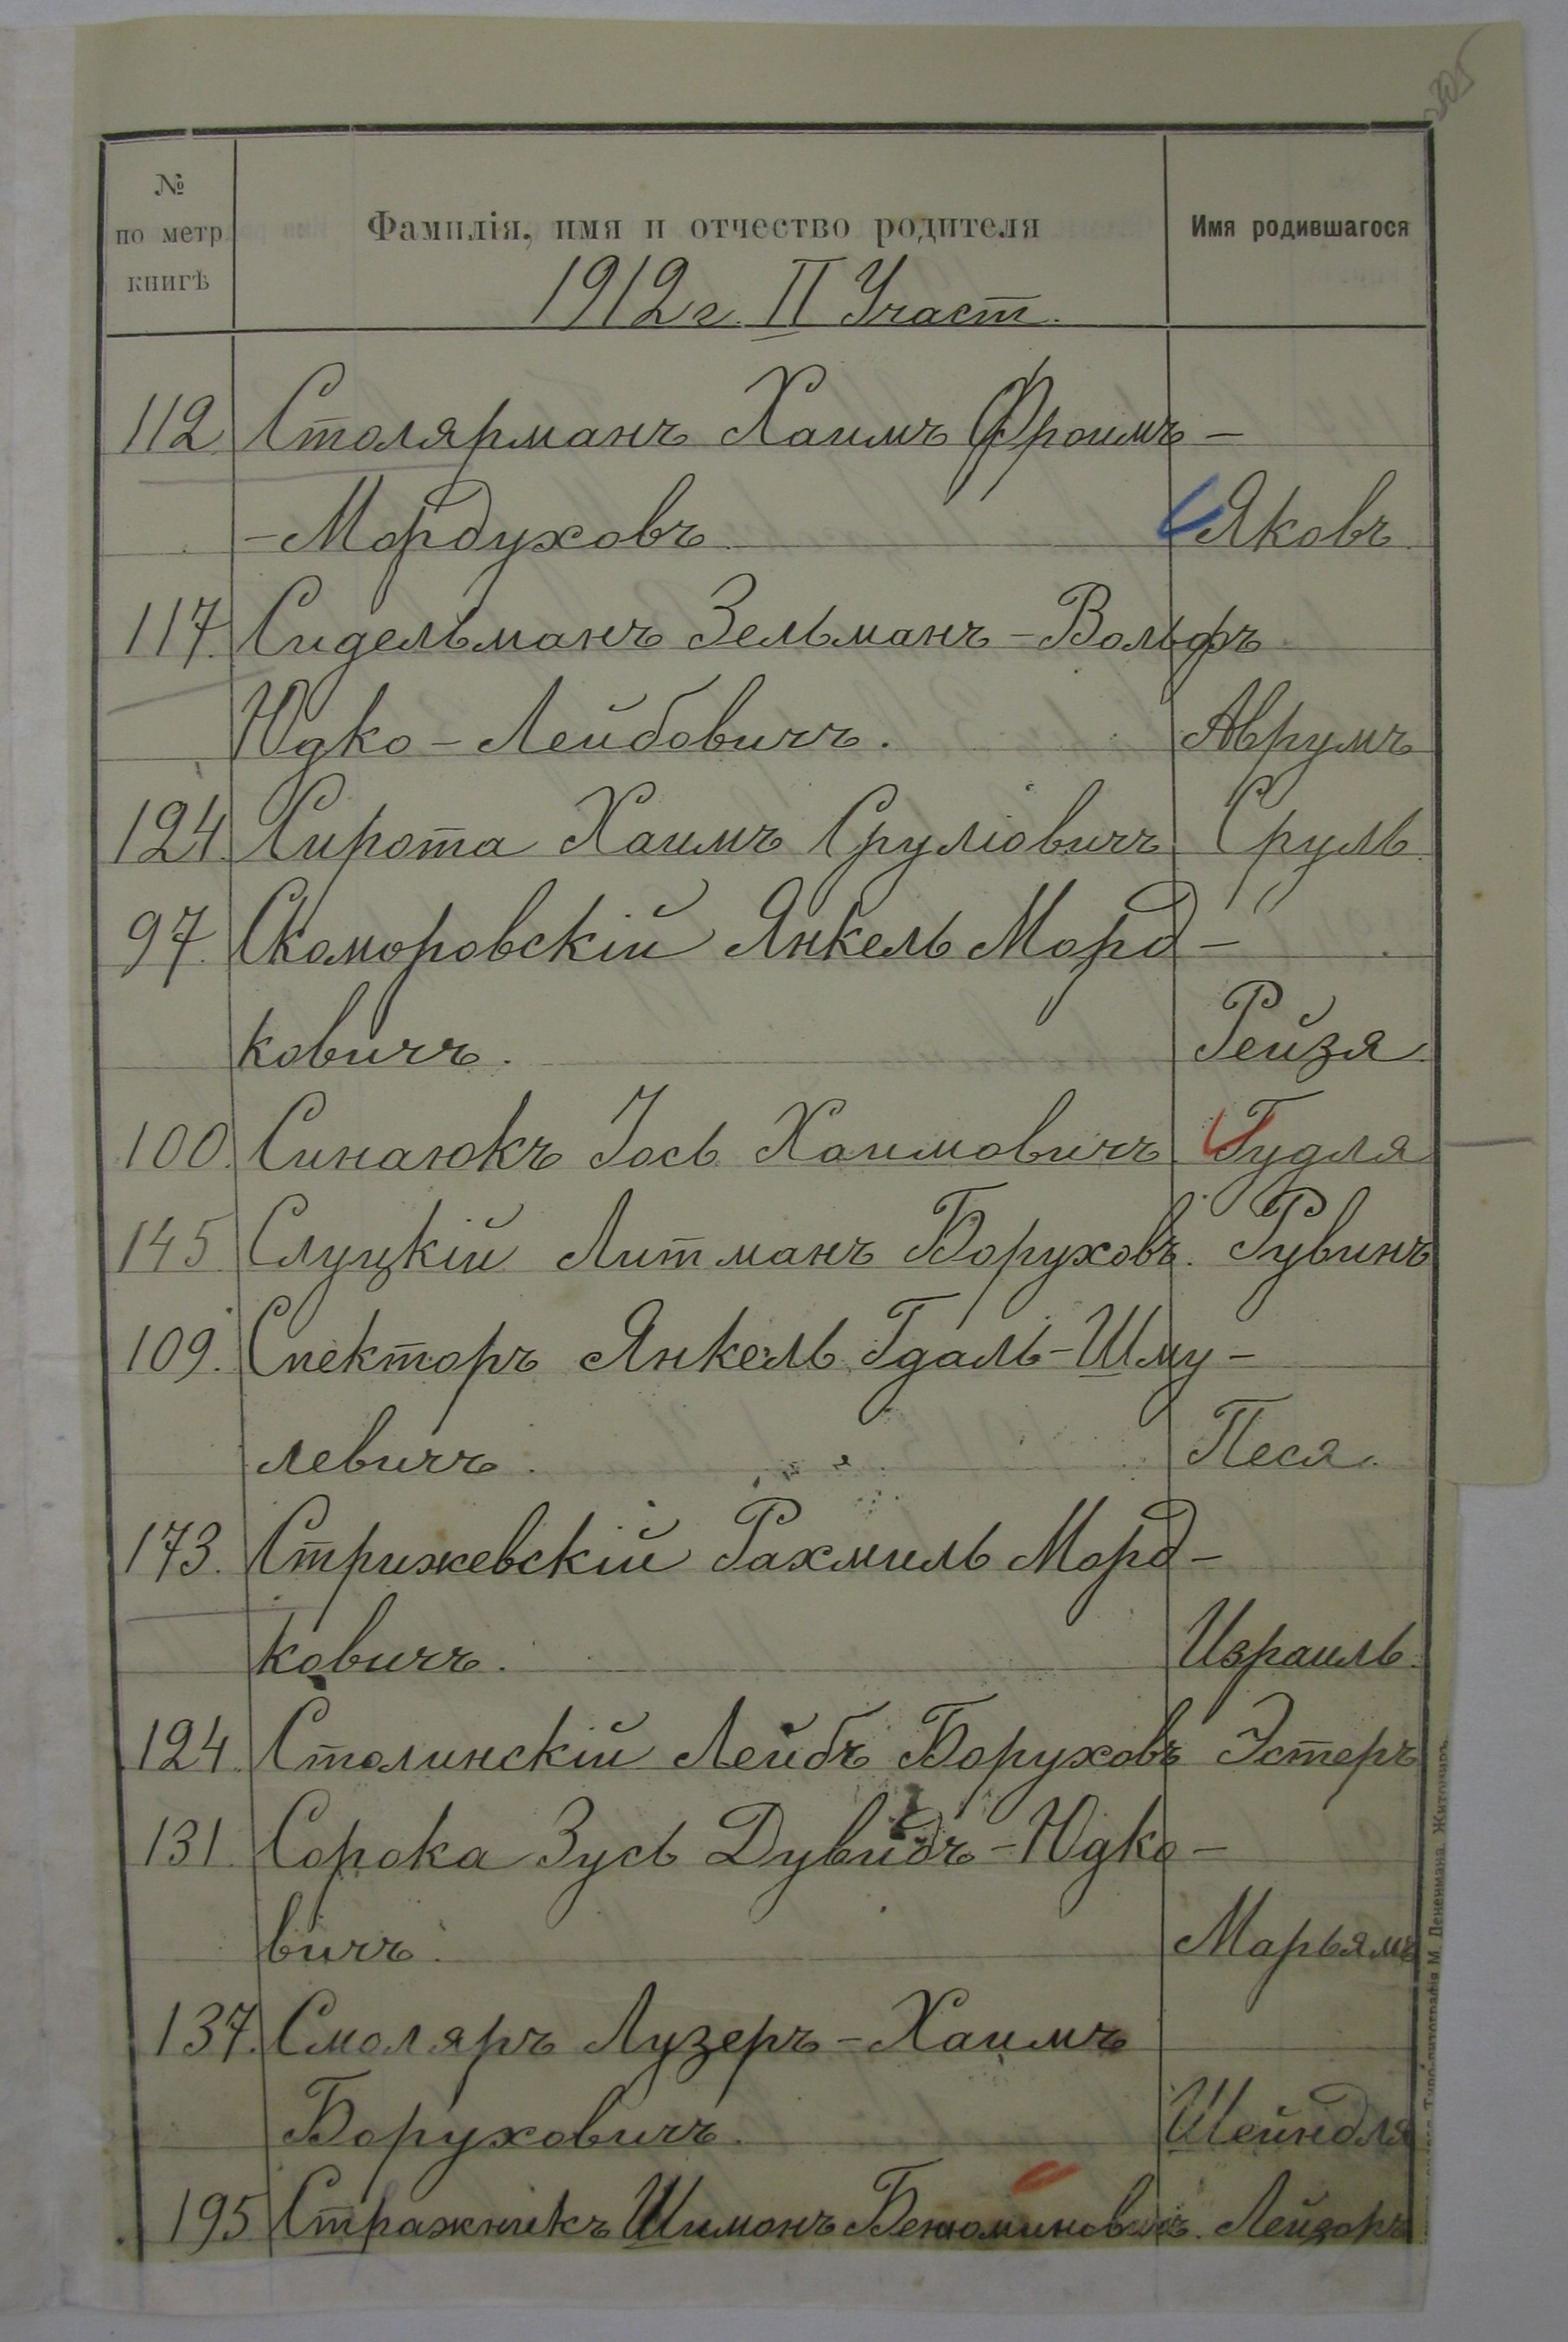 305
№
по метр.
книгѣ
Фамилія, имя и отчество родителя
Имя родившагося
1912 г. II Участ.
112 Столярманъ Хаимъ Фроимъ-
-Мордуховъ Яковъ
117. Сидельманъ Зельманъ-Вольфъ
Юдко-Лейбовичъ. Аврумъ
124. Сирота Хаимъ Сруліовичъ Сруль
97. Скоморовскій Янкель Морд-
ковичъ. Рейзя
100. Синаюкъ Іось Хаимовичъ Гудля
145 Слуцкій Литманъ Боруховъ. Рувинъ
109. Спекторъ Янкель Гдаль-Шму-
левичъ. Песя.
173. Стрижевскій Рахмиль Морд-
ковичъ. Израиль.
124. Столинскій Лейбъ Боруховъ Эстеръ
131. Сорока Зусь Дувидъ-Юдко-
вичъ. Марьямъ
137. Смоляръ Лузеръ-Хаимъ
Боруховичъ. Шейндля
195 Стражникъ Шимонъ Бенюминовичъ. Лейзоръ
М. Дененмана. Житоміръ.